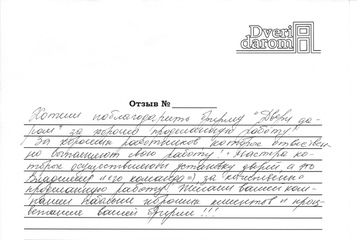 Dveri
darom
Отзыв №
Хотим поблагодарить Фирму "Двери да-
ром" за хорошо проделанную работу!
За хороших работников которые ответствен-
но выполняют свою работу! Мастера ко-
торое осуществляют установку дверей, а это
Владислав и его команда) за качественно
проделанную работу! Желаем вашей ком-
пании побольше хороших клиентов и проц-
ветание вашей Фирме!!!